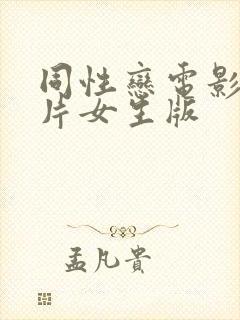 同性戀電影
片女生版
孟凡貴